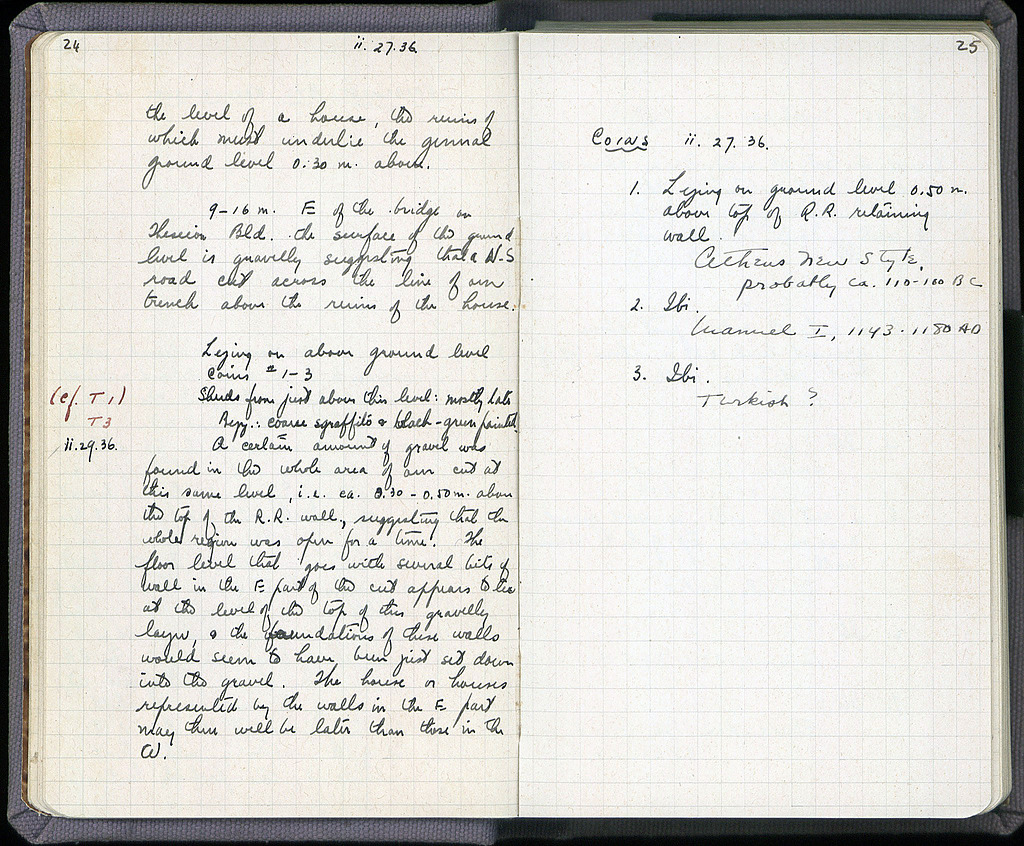 24
ii. 27.36
the level of a house, the ruins of
which must underlie the general
ground level 0.30 m. above.
9-16 m. E of the bridge on
Theseion Bld. the surface of the ground
level is gravelly suggesting that a N-S
road cut across the line of our
trench above the ruins of the house.
Lying on above ground level
Coins # 1-3
(cf. T 1)
T 3
Sherds from just above this level: mostly late
Byz.: coarse sgraffito & black-green painted
ii.29.36.
A certain amount of gravel was
found in the whole area of our cut at
this same level, i.e. ca. 0.30 - 0.50 m. above
the top of the R.R. wall, suggesting that the
whole region was open for a time. The
floor level that goes with several bits of
wall in the E part of the cut appears to lie
at the level of the top of this gravelly
layer, & the foundations of these walls
would seem to have been just set down
into the gravel. The house or houses
represented by the walls in the E part
may then well be later than those in the
W.
25
Coins ii. 27. 36.
1. Lying on ground level 0.50 m.
above top of R.R. retaining
wall.
Athens New Style,
probably ca. 110-100 BC
2. Ibi.
Manuel I, 1143-1180 AD
3. Ibi.
Turkish ?